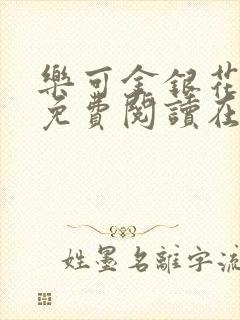 樂可金銀花
免費閱讀在
姓墨名離字流